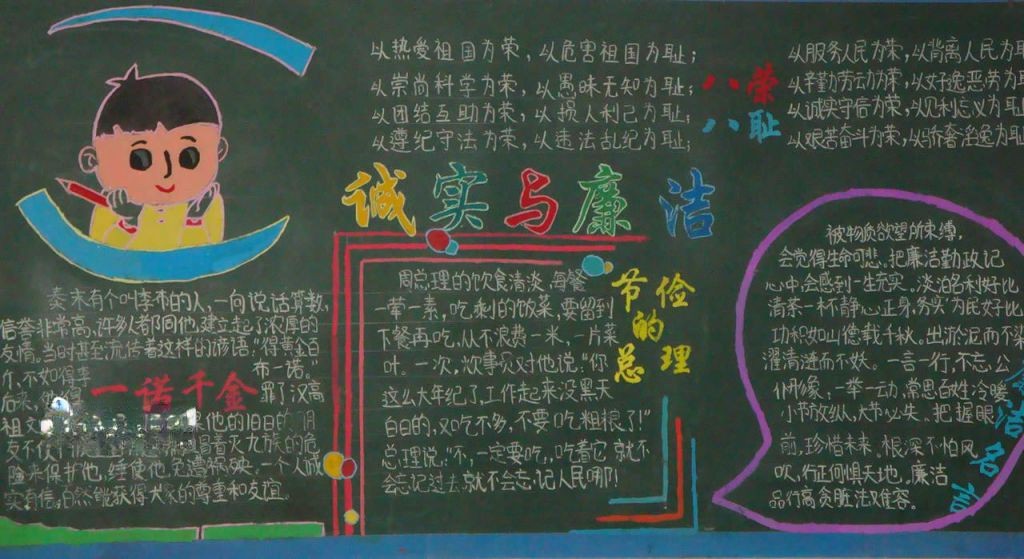 以热爱祖国为荣，以危害祖国为耻；
以崇尚科学为荣，以愚昧无知为耻；
以团结互助为荣，以损人利己为耻；
以遵纪守法为荣，以违法乱纪为耻；
八荣
八耻
以服务人民为荣，以背离人民为耻
以辛勤劳动为荣，以好逸恶劳为耻
以诚实守信为荣，以见利忘义为耻
以艰苦奋斗为荣，以骄奢淫逸为耻
诚实与廉洁
秦末有个叫季布的人，一向说话算数，
信誉非常高，许多人都同他建立起了浓厚的
友情。当时甚至流传着这样的谚语："得黄金百
斤，不如得季布一诺。"
一诺千金
后来，他得罪了汉高
祖 他的旧日的朋
友不仅不 冒着灭九族的危
险来保护他，一个人诚
实有信，自然能获得大家的尊重和友谊。
节俭的总理
周总理的饮食清淡，每餐
一荤一素，吃剩的饭菜，要留到
下餐再吃，从不浪费一米，一片菜
叶。一次，炊事员对他说："你
这么大年纪了，工作起来没黑天
白日的，又吃不多，不要吃粗粮了！"
总理说："不，一定要吃，吃着它就不
会忘记过去，就不会忘记人民哪！
被物质欲望所束缚，
会觉得生命可悲，把廉洁勤政记
心中，会感到一生充实。淡泊名利好比
清茶一杯静心正身，务实为民好比
功积如山德载千秋。出淤泥而不染
濯清涟而不妖。一言一行，不忘公
仆形象，一举一动，常思百姓冷暖
小节放纵，大节必失。把握眼
前，珍惜未来。根深不怕风
吹，行正何惧天地。廉洁
品行高，贪赃法难容。
洁名言